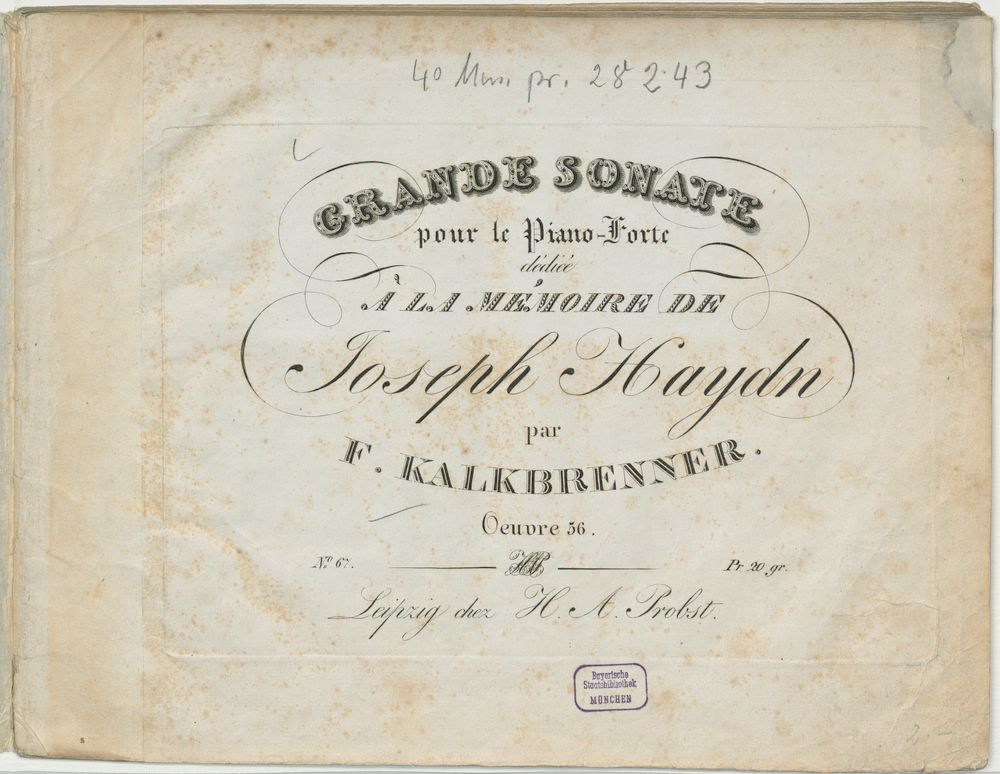 4° Mus. pr. 28243
GRANDE SONATE
pour le Piano-Forte
dédiée
À LA MÉMOIRE DE
Joseph Haydn
par
F. KALKBRENNER.
Oeuvre 56.
No. 67. HAP Pr. 20 gr.
Leipzig chez H. A. Probst.
Bayerische
Staatsbibliothek
MÜNCHEN